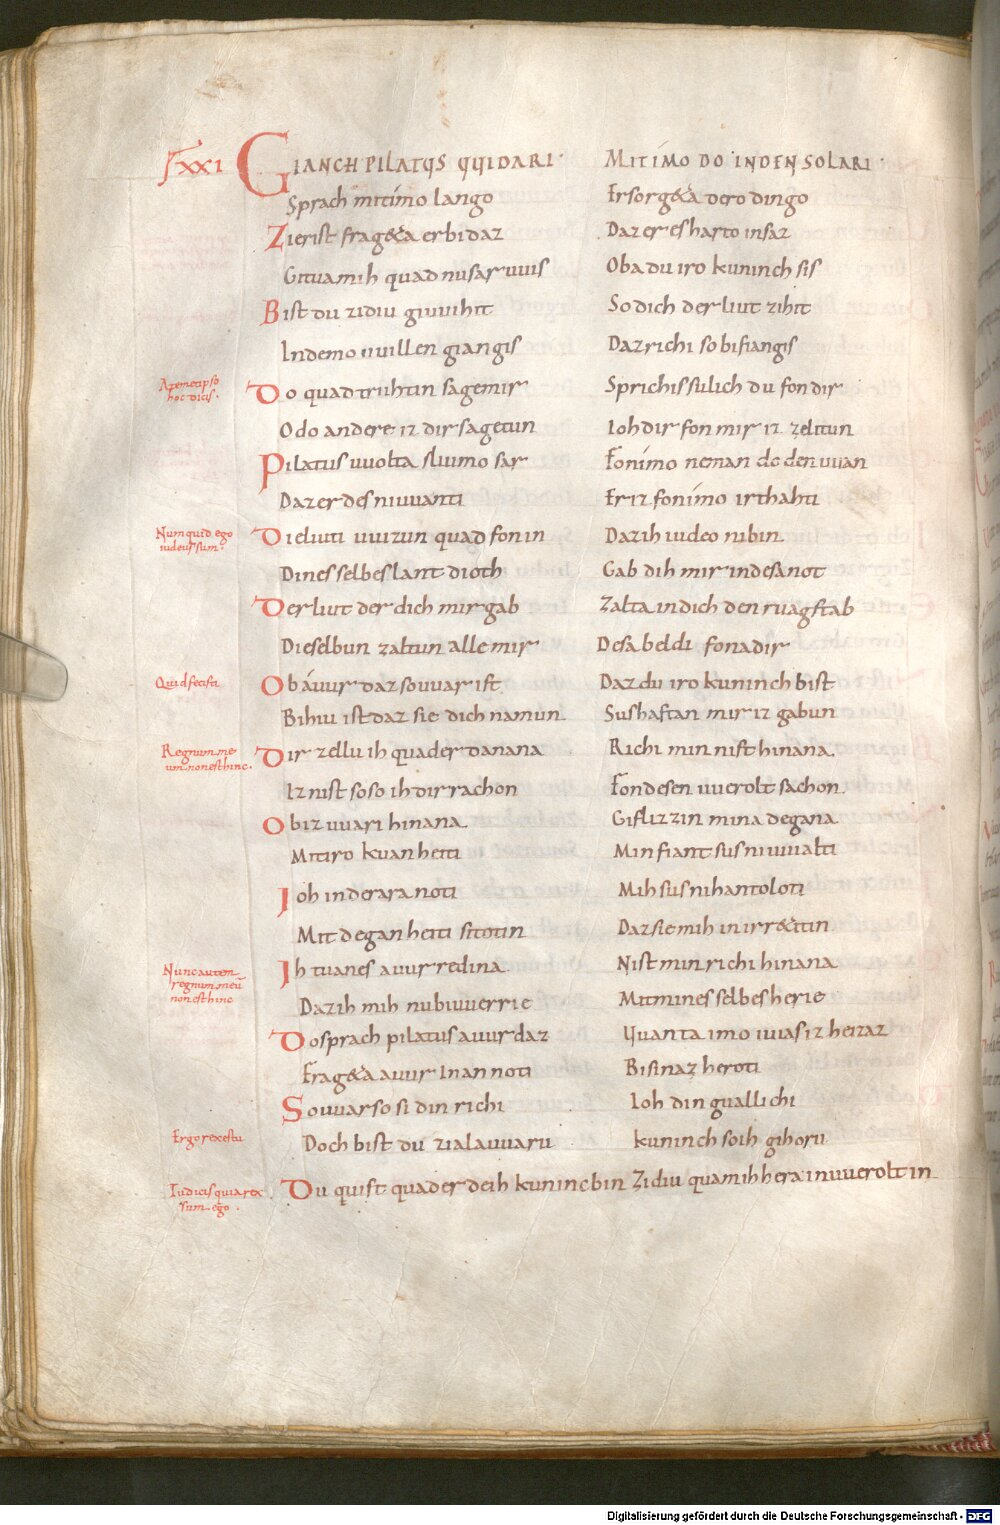 XXI GIANCH PILATUS UUIDARI · MIT IMO DO INDEN SOLARI ·
Sprach mit imo lango Er sorg&a dero dingo
Zierist frag&a er bi daz Daz er es harto insaz
Gituamih quad nu sar uuis Oba du iro kuninch sis
Bist du zi diu giuuihit So dich der liut zihit
In demo uuillen giangis Daz richi so bifiangis
A temetipso
hoc dicis ·
Do quad truhtin sage mir Sprichis sulich du fon dir
Odo andere iz dir sagetun Ioh dir fon mir iz zelitun
Pilatus uuolta sliumo sar Fon imo neman do den uuan
Daz er des ni uuanti Er iz fon imo irthahti
Numquid ego
iudeus sum ·
Die liuti uuizun quad fon in Daz ih iudeo ni bin
Dines selbes lant dioth Gab dih mir in desa not
Der liut der dich mir gab Zalta in dich den ruagstab
Die selbun zaltun alle mir Desa beldi fona dir
Quid fecisti
Ob auur daz so uuar ist Daz du iro kuninch bist
Bihiu ist daz sie dich namun Sus haftan mir iz gabun
Regnum me
um non est hinc ·
Dir zellu ih quad er danana Richi min nist hinana
Iz nist so so ih dir rachon Fon desen uuerolt sachon
Ob iz uuari hinana Giflizzin mina degana
Mit iro kuanheiti Min fiant sus ni uualti
Ioh in derara noti Mih sus ni hantoloti
Mit deganheiti sitotin Daz sie mih in irr&itin
Nunc autem
regnum meū
non est hinc
Ih tuan es auur redina Nist min richi hinana
Daz ih mih nu biuuerrie Mit mines selbes herie
Do sprach pilatus auur daz Uuanta imo iuuas iz heizaz
Frag&a auur inan noti Bi sinaz heroti
So uuar so si din richi Ioh din guallichi
Ergo rex es tu
Doch bist du zi alauuaru kuninch so ih gihoru
Tu dicis quia rex
sum ego ·
Du quist quad er deih kuninc bin Zi diu quam ih hera in uuerolt in
Digitalisierung gefördert durch die Deutsche Forschungsgemeinschaft - DFG